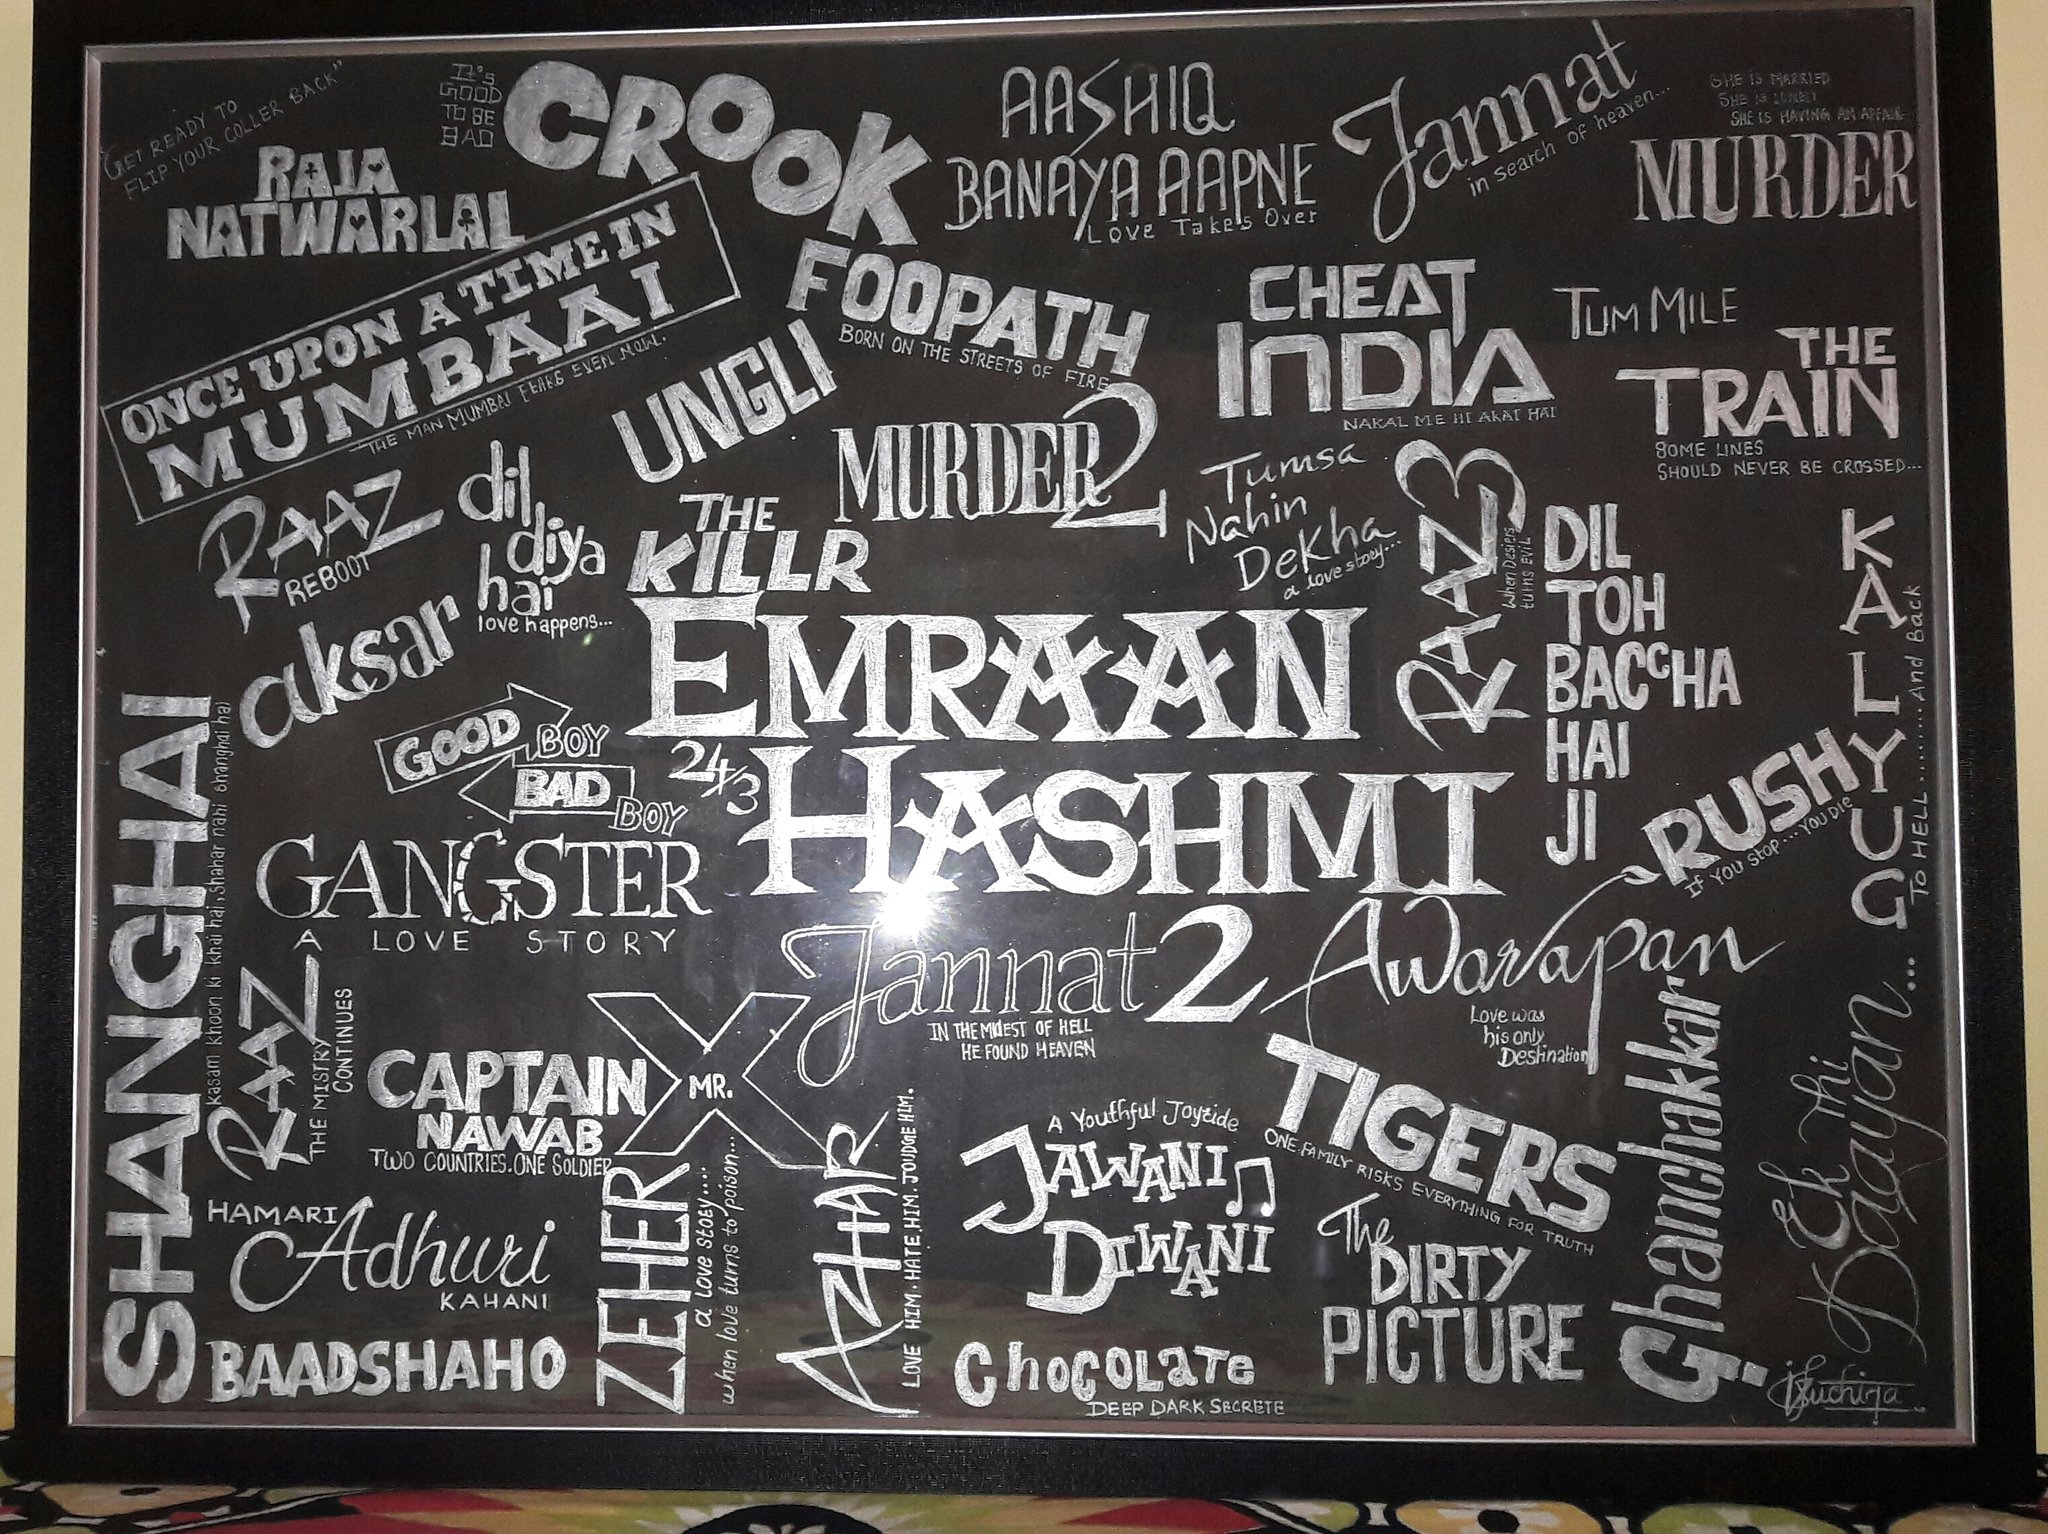 GET READY TO
FLIP YOUR COLLER BACK"
RAJA
NATWARLAL
It's
GOOD
TO BE
BAD
CROOK
AASHIQ
BANAYA AAPNE
Love Takes Over
Jannat
in search of heaven...
SHE IS MARRIED
SHE IS LONELY
SHE IS HAVING AN AFFAIR
MURDER
ONCE UPON A TIME IN
MUMBAAI
THE MAN MUMBAI FEARS EVEN NOW.
FOOPATH
BORN ON THE STREETS OF FIRE
CHEAT
INDIA
NAKAL ME HI AKAL HAI
TUM MILE
THE
TRAIN
SOME LINES
SHOULD NEVER BE CROSSED...
UNGLI
MURDER 2
RAAZ
REBOOT
dil
diya
hai
love happens...
THE
KILLR
Tumsa
Nahin
Dekha
a love story...
RAAZ 3
When Desires
turns EVIL
DIL
TOH
BACCHA
HAI
JI
KALYUG
TO HELL........And Back
aksar
EMRAAN
HASHMI
24/3
GOOD BOY
BAD BOY
SHANGHAI
kasam khoon ki khai hai, Shahar nahi shanghai hai
GANGSTER
A LOVE STORY
RUSH
IF YOU STOP....YOU DIE
Jannat 2
IN THE MIDEST OF HELL
HE FOUND HEAVEN
Awarapan
Love was
his only
Destination
RAAZ
THE MISTRY
CONTINUES
CAPTAIN
NAWAB
TWO COUNTRIES.ONE SOLDIER
MR. X
TIGERS
ONE FAMILY RISKS EVERYTHING FOR TRUTH
Ghanchakkar
Ek Thi
Daayan...
HAMARI
Adhuri
KAHANI
ZEHER
a love stoey....
when love turns to poison...
AZHAR
LOVE HIM. HATE.HIM. JOUDGE HIM.
A Youthful Joyride
JAWANI
DIWANI
The
DIRTY
PICTURE
BAADSHAHO
CHOCOLATE
DEEP DARK SECRETE